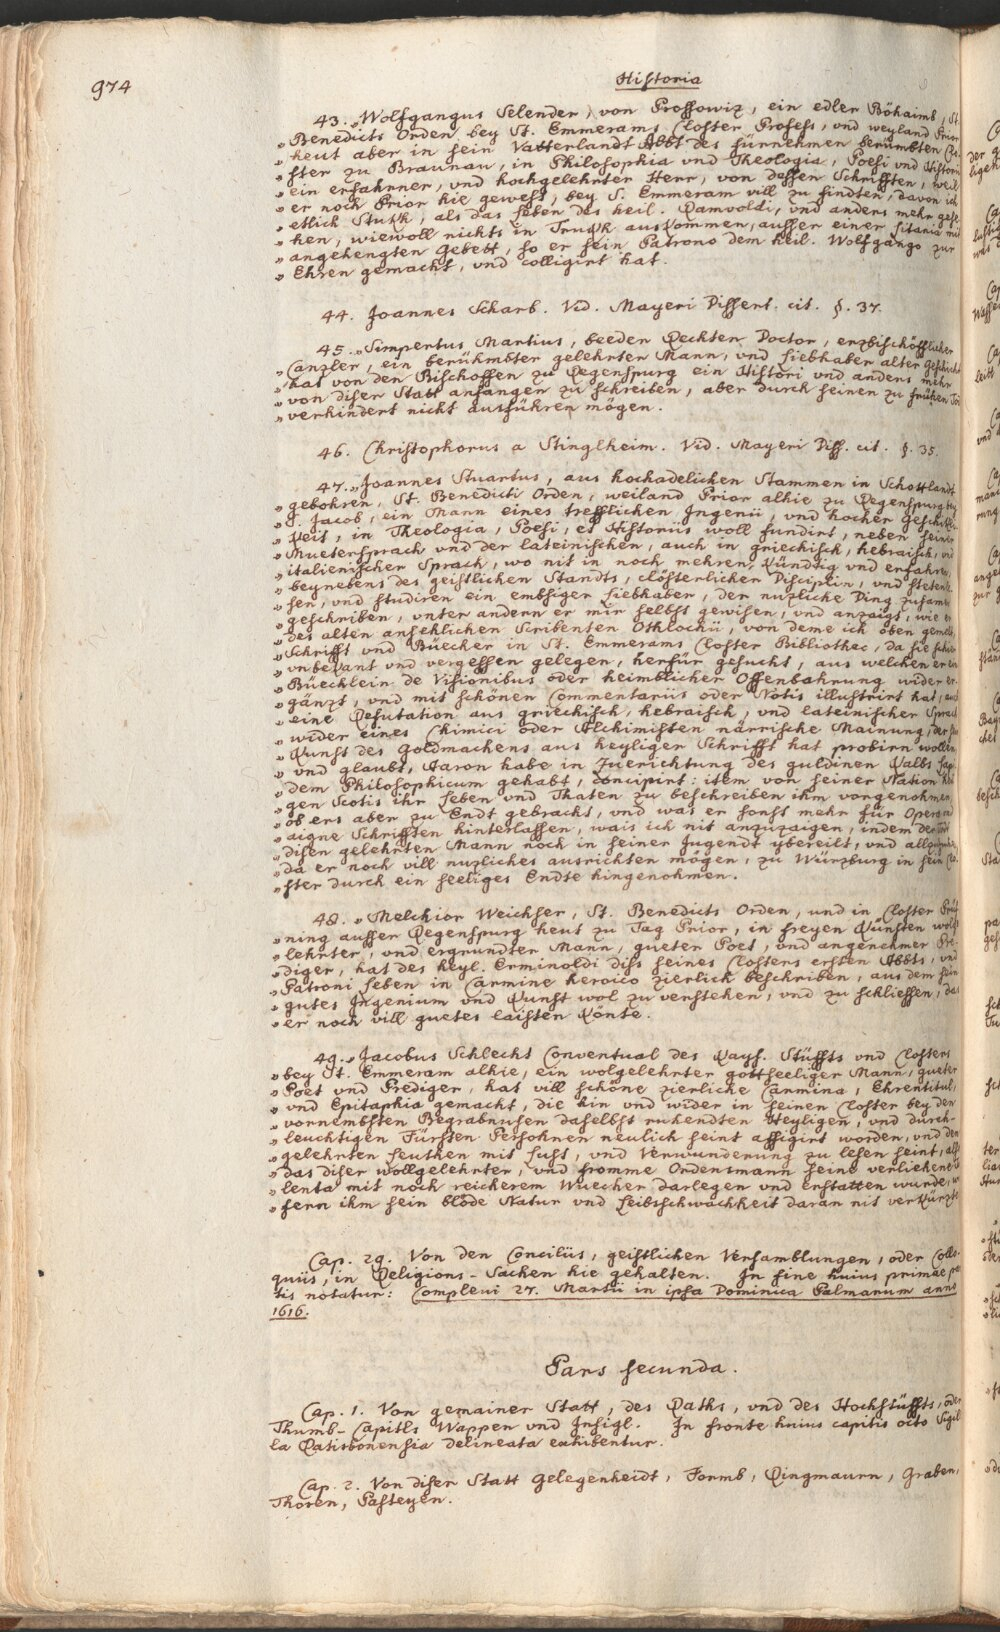 974
Historia
43. „Wolfgangus Selender, von Prossowiz, ein edler Böhaimb, St.
„Benedicts Orden bey St. Emmerams Closter Profess, vnd weyland Prior
„heut aber in sein Vatterlandt Abbt des fürnehmen berümbten Clo-
„ster zu Braunau, in Philosophia vnd Theologia, Poesi vnd Historii
„ein erfahrner, vnd hochgelehrter Herr, von dessen Schrifften, weil
„er noch Prior hie gewest, bey S. Emmeram vill zu findten, davon ich
„etlich Stukh, als das Leben des heil. Ramvoldi, vnd anders mehr gese-
„hen, wiewoll nichts in Trukh auskommen, ausser einer Litania mit
„angehengten Gebett, so er sein Patrono dem heil. Wolfgango zur
„Ehren gemacht, vnd colligirt hat.
44. Joannes Scharb. Vid. Mayeri Dissert. cit. §. 37.
45. „Simpertus Martius, beeden Rechten Doctor, erzbischöfflicher
„Canzler, ein berühmbter gelehrten Mann, vnd Liebhaber alter Geschicht
„hat von den Bischoffen zu Regenspurg ein Histori vnd anders mehr
„von diser Statt anfangen zu schreiben, aber durch seinen zu frühen Tod
„verhindert nicht ausführen mögen.
46. Christophorus a Stinglheim. Vid. Mayeri Diss. cit. §. 35.
47. „Joannes Stuartus, aus hochadelichen Stammen in Schottlandt
„gebohren, St. Benedicti Orden, weiland Prior alhie zu Regenspurg bey
„S. Jacob, ein Mann eines trefflichen Ingenii, vnd hocher Geschikli-
„keit, in Theologia, Poesi, et Historiis woll fundirt, neben seiner
„Muetersprach vnd der lateinischen, auch in griechisch, hebraisch, vnd
„italienischer Sprach, wo nit in noch mehren, kündtig vnd erfahren,
„beynebens des geistlichen Standts, clösterlicher Disciplin, vnd stetens
„sen, vnd studiren ein embsiger Liebhaber, der nuzliche Ding zusamen
„geschriben, vnter andern er mir selbst gewisen, vnd anzaigt, wie er
„des alten ansehlichen Scribenten Othlochii, von deme ich oben gemelt,
„Schrifft vnd Büecher in St. Emmerams Closter Bibliothec, da sie schier
„vnbekant vnd vergessen gelegen, herfür gesucht, aus welchen er ein
„Büechlein de Visionibus oder heimblicher Offenbahrung wider er-
„gänzt, vnd mit schönen Commentariis oder Notis illustrirt hat, auch
„eine Refutation aus griechisch, hebraisch, vnd lateinischer Sprach
„wider eines Chimici oder Alchimisten närrische Mainung, der die
„Kunst des Goldmachens aus heyliger Schrifft hat probirn wollen,
„vnd glaubt, Aaron habe in Zuerichtung des guldinen Kalbs Lap-
„dem Philosophicum gehabt, concipirt: item von seiner Nation heili
„gen Scotis ihr Leben vnd Thaten zu beschreiben ihm vorgenohmen,
„ob ers aber zu Endt gebracht, vnd was er sonst mehr für Opera vnd
„aigne Schrifften hinterlassen, wais ich nit anzuzaigen, indem der Todt
„disen gelehrten Mann noch in seiner Jugendt vbereilt, vnd allzufrüe,
„da er noch vill nuzliches ausrichten mögen, zu Würzburg in sein Clo-
„ster durch ein seeliges Endte hingenohmen.
48. „Melchior Weichser, St. Benedicts Orden, und in Closter Prüf-
„ning ausser Regenspurg heut zu Tag Prior, in freyen Künsten wolge-
„lehrter, vnd ergrundter Mann, gueter Poet, vnd angenehmer Pre-
„diger, hat des heyl. Erminoldi diss seines Closters ersten Abbts, vnd
„Patroni Leben in Carmine heroico zierlich beschriben, aus dem sein
„gutes Ingenium vnd Kunst wol zu verstehen, vnd zu schliessen, das
„er noch vill guetes laisten könte.
49. „Jacobus Schlecht Conventual des Kays. Stüffts vnd Closters
„bey St. Emmeram alhie, ein wolgelehrter gottseeliger Mann, gueter
„Poet vnd Prediger, hat vill schöne zierliche Carmina, Ehrentitul,
„vnd Epitaphia gemacht, die hin vnd wider in seinen Closter bey den
„vornembsten Begrabnusen daselbst ruhendten Heyligen, vnd durch-
„leuchtigen Fürsten Persohnen neulich seint affigirt worden, vnd den
„gelehrten Leuthen mit Lust, vnd Verwunderung zu lesen seint, als
„das diser wollgelehrter, vnd fromme Ordensmann seine verliehene
„lenta mit noch reicherem Wuecher darlegen vnd erstatten wurde,
„fern ihm sein blöde Natur vnd Leibsschwachheit daran nit verkürzt
Cap. 29. Von den Conciliis, geistlichen Versamblungen, oder Collo-
quiis, in Religions-Sachen hie gehalten. In fine huius primae par
tis notatur: Complevi 27. Martii in ipsa Dominica Palmarum anno
1616.
Pars secunda.
Cap. 1. Von gemainer Statt, des Raths, vnd des Hochstüffts, oder
Thumb-Capitls Wappen vnd Insigl. In fronte huius capitis octo Sigil
la Ratisbonensia delineata exhibentur.
Cap. 2. Von diser Statt Gelegenheidt, Formb, Ringmaurn, Graben,
Thoren, Pasteyen.